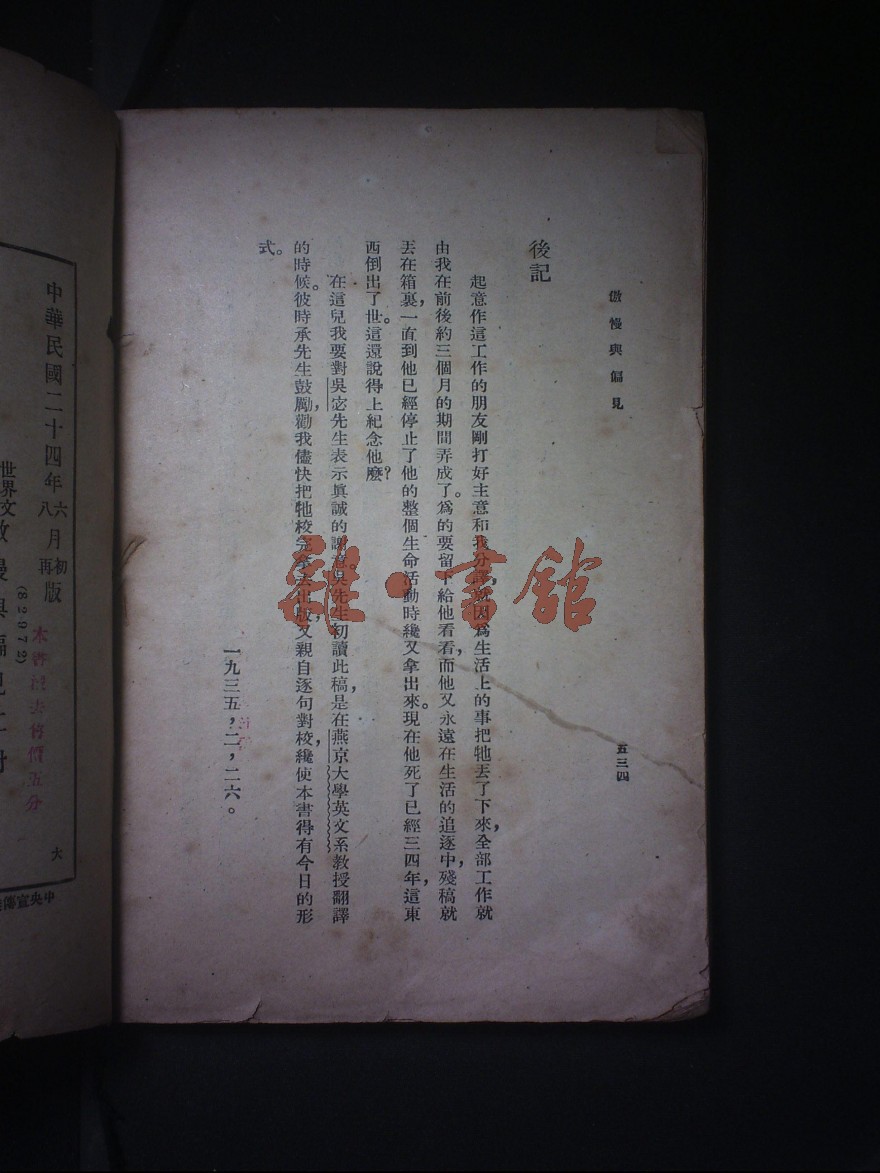 傲慢與偏見
五三四
後記
起意作這工作的朋友剛打好主意和我分譯，就因爲生活上的事把牠丟了下來，全部工作就
由我在前後約三個月的期間弄成了。爲的要留下給他看看，而他又永遠在生活的追逐中，殘稿就
丟在箱裏，一直到他已經停止了他的整個生命活動時纔又拿出來。現在他死了已經三四年，這東
西倒出了世。這還說得上紀念他麼？
在這兒我要對吳宓先生表示眞誠的謝意。吳先生初讀此稿，是在燕京大學英文系教授翻譯
的時候。彼時承先生鼓勵，勸我儘快把牠校完拿去出版，又親自逐句對校，纔使本書得有今日的形
式。
一九三五，二，二六。
雜·書館
中華民國二十四年六月初版
八 再
(82972)
世界文
傲慢與偏見二册
本書
售價五分
大
中央宣傳